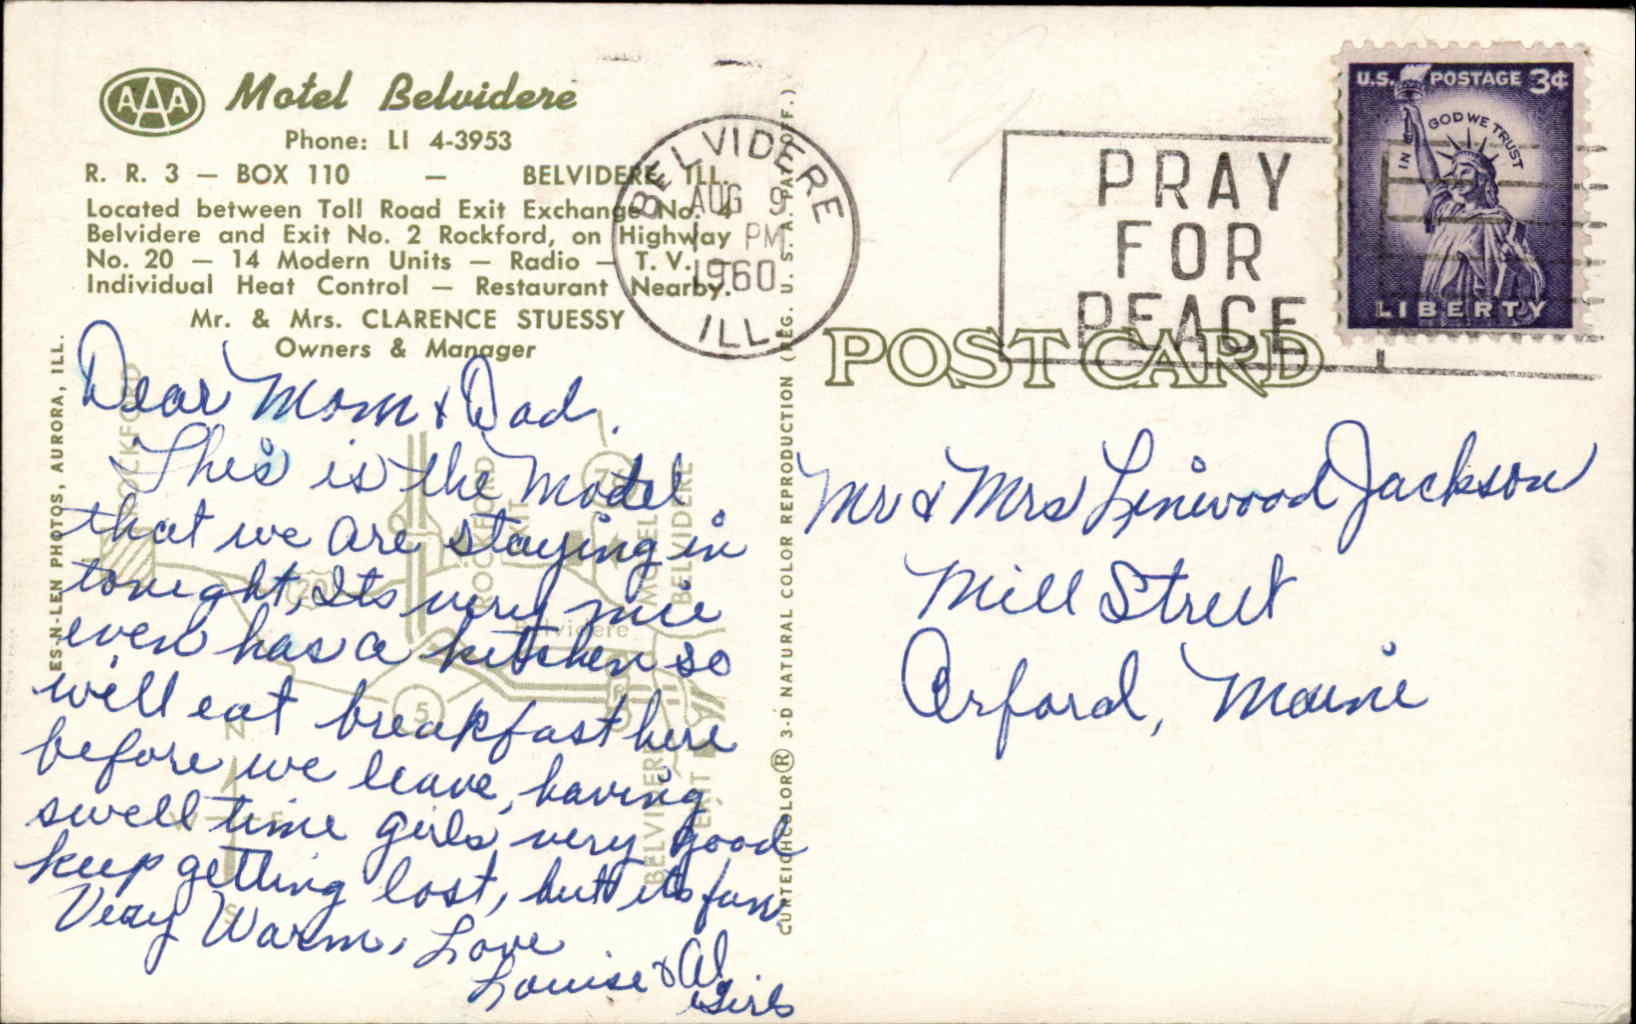 AAA
Motel Belvidere
Phone: LI 4-3953
R. R. 3 — BOX 110 — BELVIDERE, ILL.
Located between Toll Road Exit Exchange No. 4
Belvidere and Exit No. 2 Rockford, on Highway
No. 20 — 14 Modern Units — Radio — T. V. —
Individual Heat Control — Restaurant Nearby.
Mr. & Mrs. CLARENCE STUESSY
Owners & Manager
BELVIDERE
AUG 9
PM
1960
ILL.
PRAY
FOR
PEACE
U.S. POSTAGE 3¢
IN GOD WE TRUST
LIBERTY
POST CARD
Dear Mom & Dad,
This is the Motel
that we are staying in
tonight, Its very nice
even has a kitchen so
we'll eat breakfast here
before we leave, having
swell time girls very good
keep getting lost, but its fun
Very Warm, Love
Louise & Al
Girls
Mr & Mrs Linwood Jackson
Mill Street
Orford, Maine
ES-N-LEN PHOTOS, AURORA, ILL.
CURTEICHCOLOR® 3-D NATURAL COLOR REPRODUCTION (REG. U. S. A. PAT. OFF.)
ROCKFORD
ROCKFORD
EXIT
MOTEL
BELVIDERE
20
Belvidere
5
BELVIDERE
EXIT
N
E
S